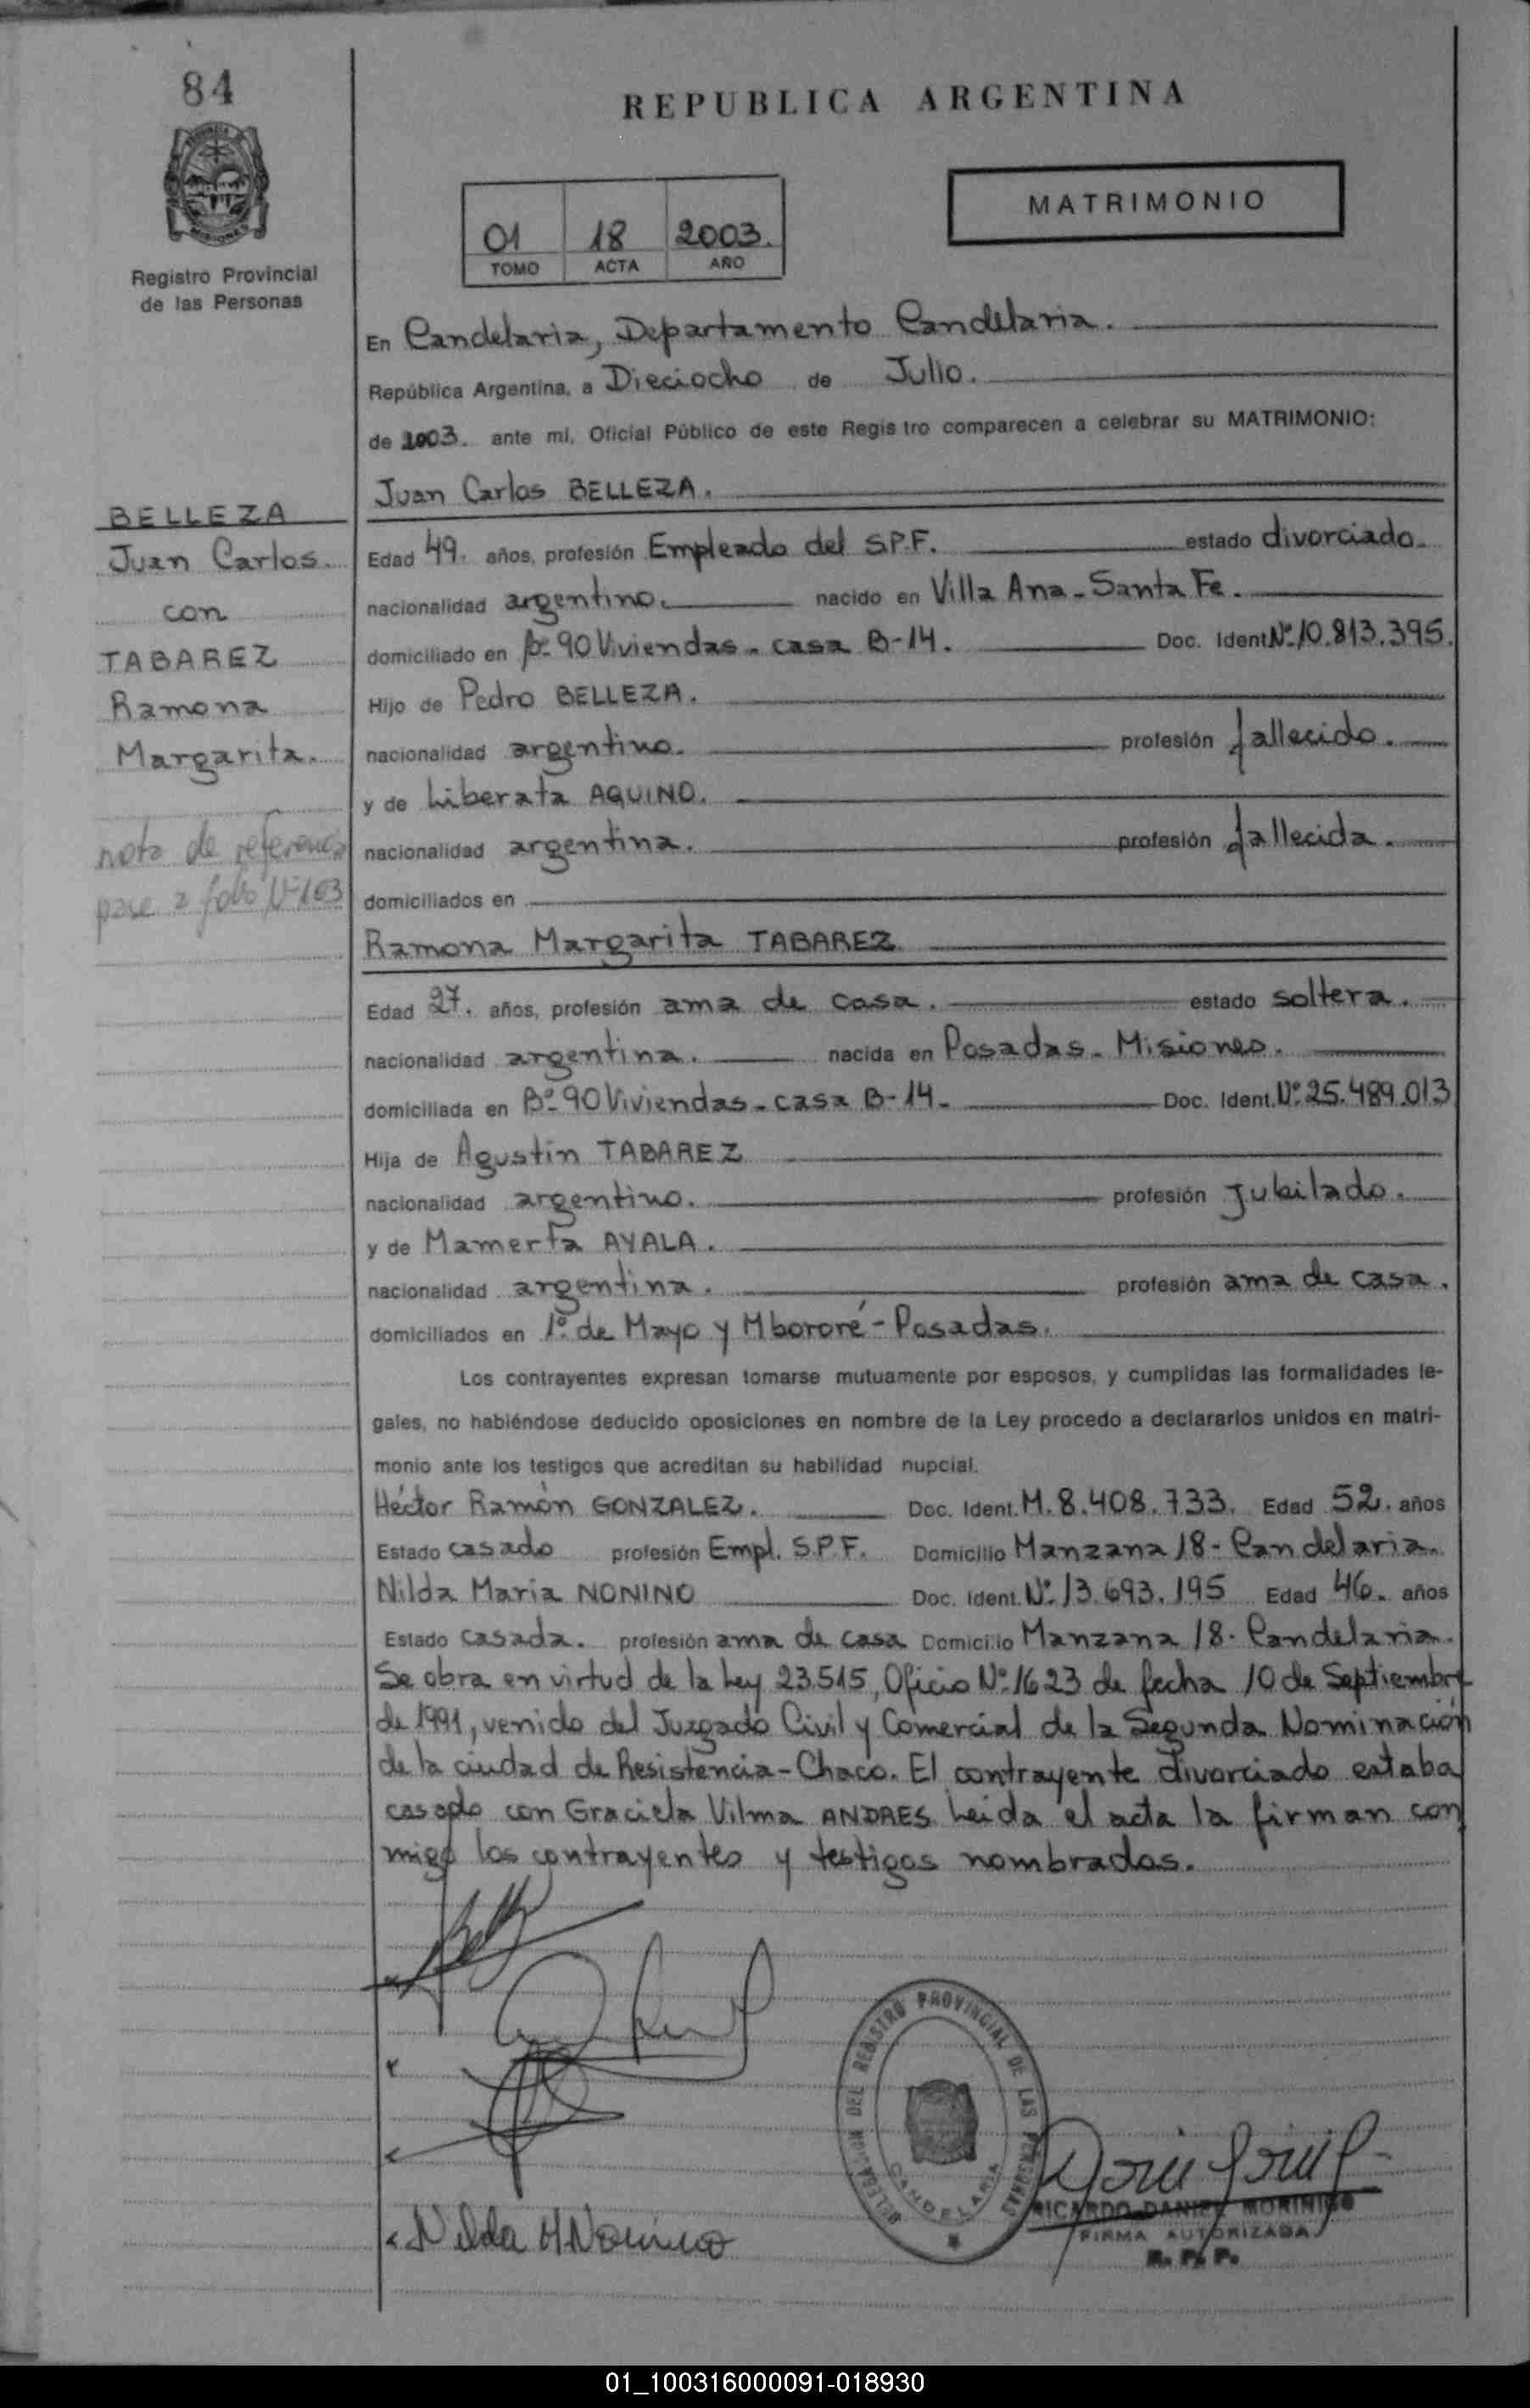 84
REPUBLICA ARGENTINA
MISIONES
Registro Provincial
de las Personas
01 18 2003.
TOMO ACTA AÑO
MATRIMONIO
En Candelaria, Departamento Candelaria.
República Argentina, a Dieciocho de Julio.
de 2003. ante mi, Oficial Público de este Regis tro comparecen a celebrar su MATRIMONIO:
BELLEZA
Juan Carlos.
con
TABAREZ
Ramona
Margarita.
nota de referencia
pase a folio Nº 103
Juan Carlos BELLEZA.
Edad 49. años, profesión Empleado del S.P.F. estado divorciado.
nacionalidad argentino. nacido en Villa Ana-Santa Fe.
domiciliado en Bº 90 Viviendas. casa B-14. Doc. Ident. Nº 10.813.395.
Hijo de Pedro BELLEZA.
nacionalidad argentino. profesión fallecido.
y de Liberata AQUINO.
nacionalidad argentina. profesión fallecida.
domiciliados en
Ramona Margarita TABAREZ
Edad 27. años, profesión ama de casa. estado soltera.
nacionalidad argentina. nacida en Posadas. Misiones.
domiciliada en Bº 90 Viviendas. casa B-14. Doc. Ident. Nº 25.489.013
Hija de Agustín TABAREZ
nacionalidad argentino. profesión jubilado.
y de Mamerta AYALA.
nacionalidad argentina. profesión ama de casa.
domiciliados en 1º de Mayo y Mbororé-Posadas.
Los contrayentes expresan tomarse mutuamente por esposos, y cumplidas las formalidades le-
gales, no habiéndose deducido oposiciones en nombre de la Ley procedo a declararlos unidos en matri-
monio ante los testigos que acreditan su habilidad nupcial.
Héctor Ramón GONZALEZ. Doc. Ident. M. 8.408.733. Edad 52. años
Estado casado profesión Empl. S.P.F. Domicilio Manzana 18- Candelaria.
Nilda María NONINO Doc. Ident. Nº 13.693.195 Edad 46. años
Estado casada. profesión ama de casa Domicilio Manzana 18- Candelaria.
Se obra en virtud de la Ley 23.515, Oficio Nº 1623 de fecha 10 de Septiembre
de 1991, venido del Juzgado Civil y Comercial de la Segunda Nominación
de la ciudad de Resistencia-Chaco. El contrayente divorciado estaba
casado con Graciela Vilma ANDRES. Leida el acta la firman con
migo los contrayentes y testigos nombrados.
DELEGACION DEL REGISTRO PROVINCIAL DE LAS PERSONAS
CANDELARIA
Nilda M Nonino
RICARDO DANIEL MORINIGO
FIRMA AUTORIZADA
R. P. P.
01_100316000091-018930